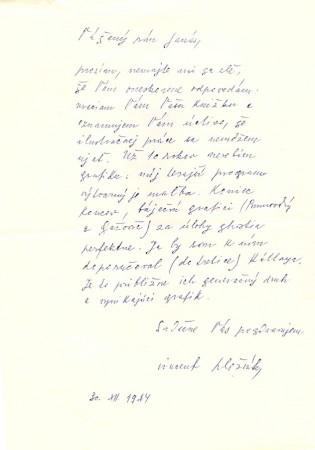 Vážený pán Janás,
prosím, nemajte mi za zlé,
že Vám oneskorene odpovedám.
Vraciam Vám Vašu knižku a
oznamujem Vám úctivo, že
ilustračnej práce sa nemôžem
ujať. Už 10 rokov nerobím
grafiku: môj terajší program
výtvarný je maľba. Koniec
koncov, báječní grafici (
a ) sa úlohy zhostia
perfektne. Ja by som k nim
doporučoval (do tretice) Kállaya.
Je to približne ich generačný druh
a vynikajúci grafik.
Srdečne Vás pozdravujem
Vincent
30. XII. 1984